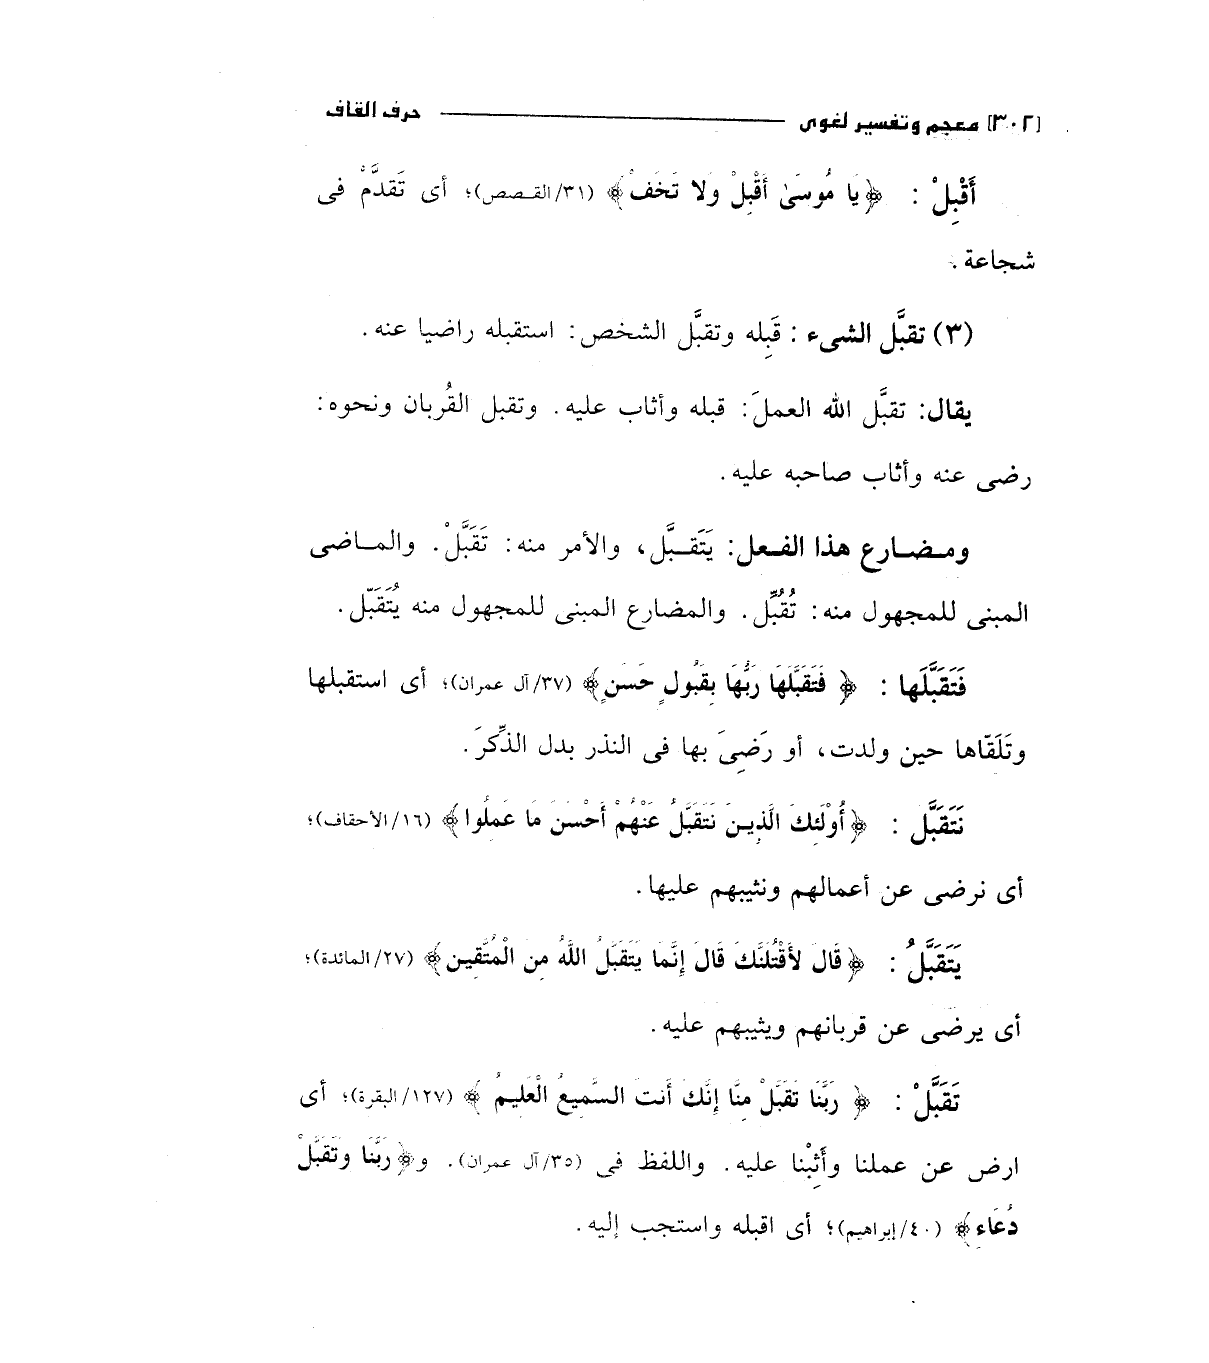 [٣٠٢] معجم وتفسير لغوى حرف القاف
أَقْبِلْ : ﴿يَا مُوسَىٰ أَقْبِلْ وَلا تَخَفْ﴾ (٣١/القصص)؛ أى تَقدَّمْ فى
شجاعة.
(٣) تقبَّل الشىء : قَبِله وتقبَّل الشخص: استقبله راضيا عنه.
يقال: تقبَّل الله العملَ: قبله وأثاب عليه. وتقبل القُربان ونحوه:
رضى عنه وأثاب صاحبه عليه.
ومضارع هذا الفعل: يَتَقبَّل، والأمر منه: تَقَبَّلْ. والماضى
المبنى للمجهول منه: تُقُبِّل. والمضارع المبنى للمجهول منه يُتَقَبّل.
فَتَقَبَّلَها : ﴿فَتَقَبَّلَهَا رَبُّهَا بِقَبُولٍ حَسَنٍ﴾ (٣٧/آل عمران)؛ أى استقبلها
وتَلَقّاها حين ولدت، أو رَضِىَ بها فى النذر بدل الذَّكَر.
نَتَقَبَّل : ﴿أُوْلَئِكَ الَّذِينَ نَتَقَبَّلُ عَنْهُمْ أَحْسَنَ مَا عَمِلُوا﴾ (١٦/الأحقاف)؛
أى نرضى عن أعمالهم ونثيبهم عليها.
يَتَقَبَّلُ : ﴿قَالَ لأَقْتُلَنَّكَ قَالَ إِنَّمَا يَتَقَبَّلُ اللَّهُ مِنَ الْمُتَّقِينَ﴾ (٢٧/المائدة)؛
أى يرضى عن قربانهم ويثيبهم عليه.
تَقَبَّلْ : ﴿رَبَّنَا تَقَبَّلْ مِنَّا إِنَّكَ أَنتَ السَّمِيعُ الْعَلِيمُ﴾ (١٢٧/البقرة)؛ أى
ارض عن عملنا وأَثِبْنا عليه. واللفظ فى (٣٥/آل عمران). و﴿رَبَّنَا وَتَقَبَّلْ
دُعَاءِ﴾ (٤٠/إبراهيم)؛ أى اقبله واستجب إليه.